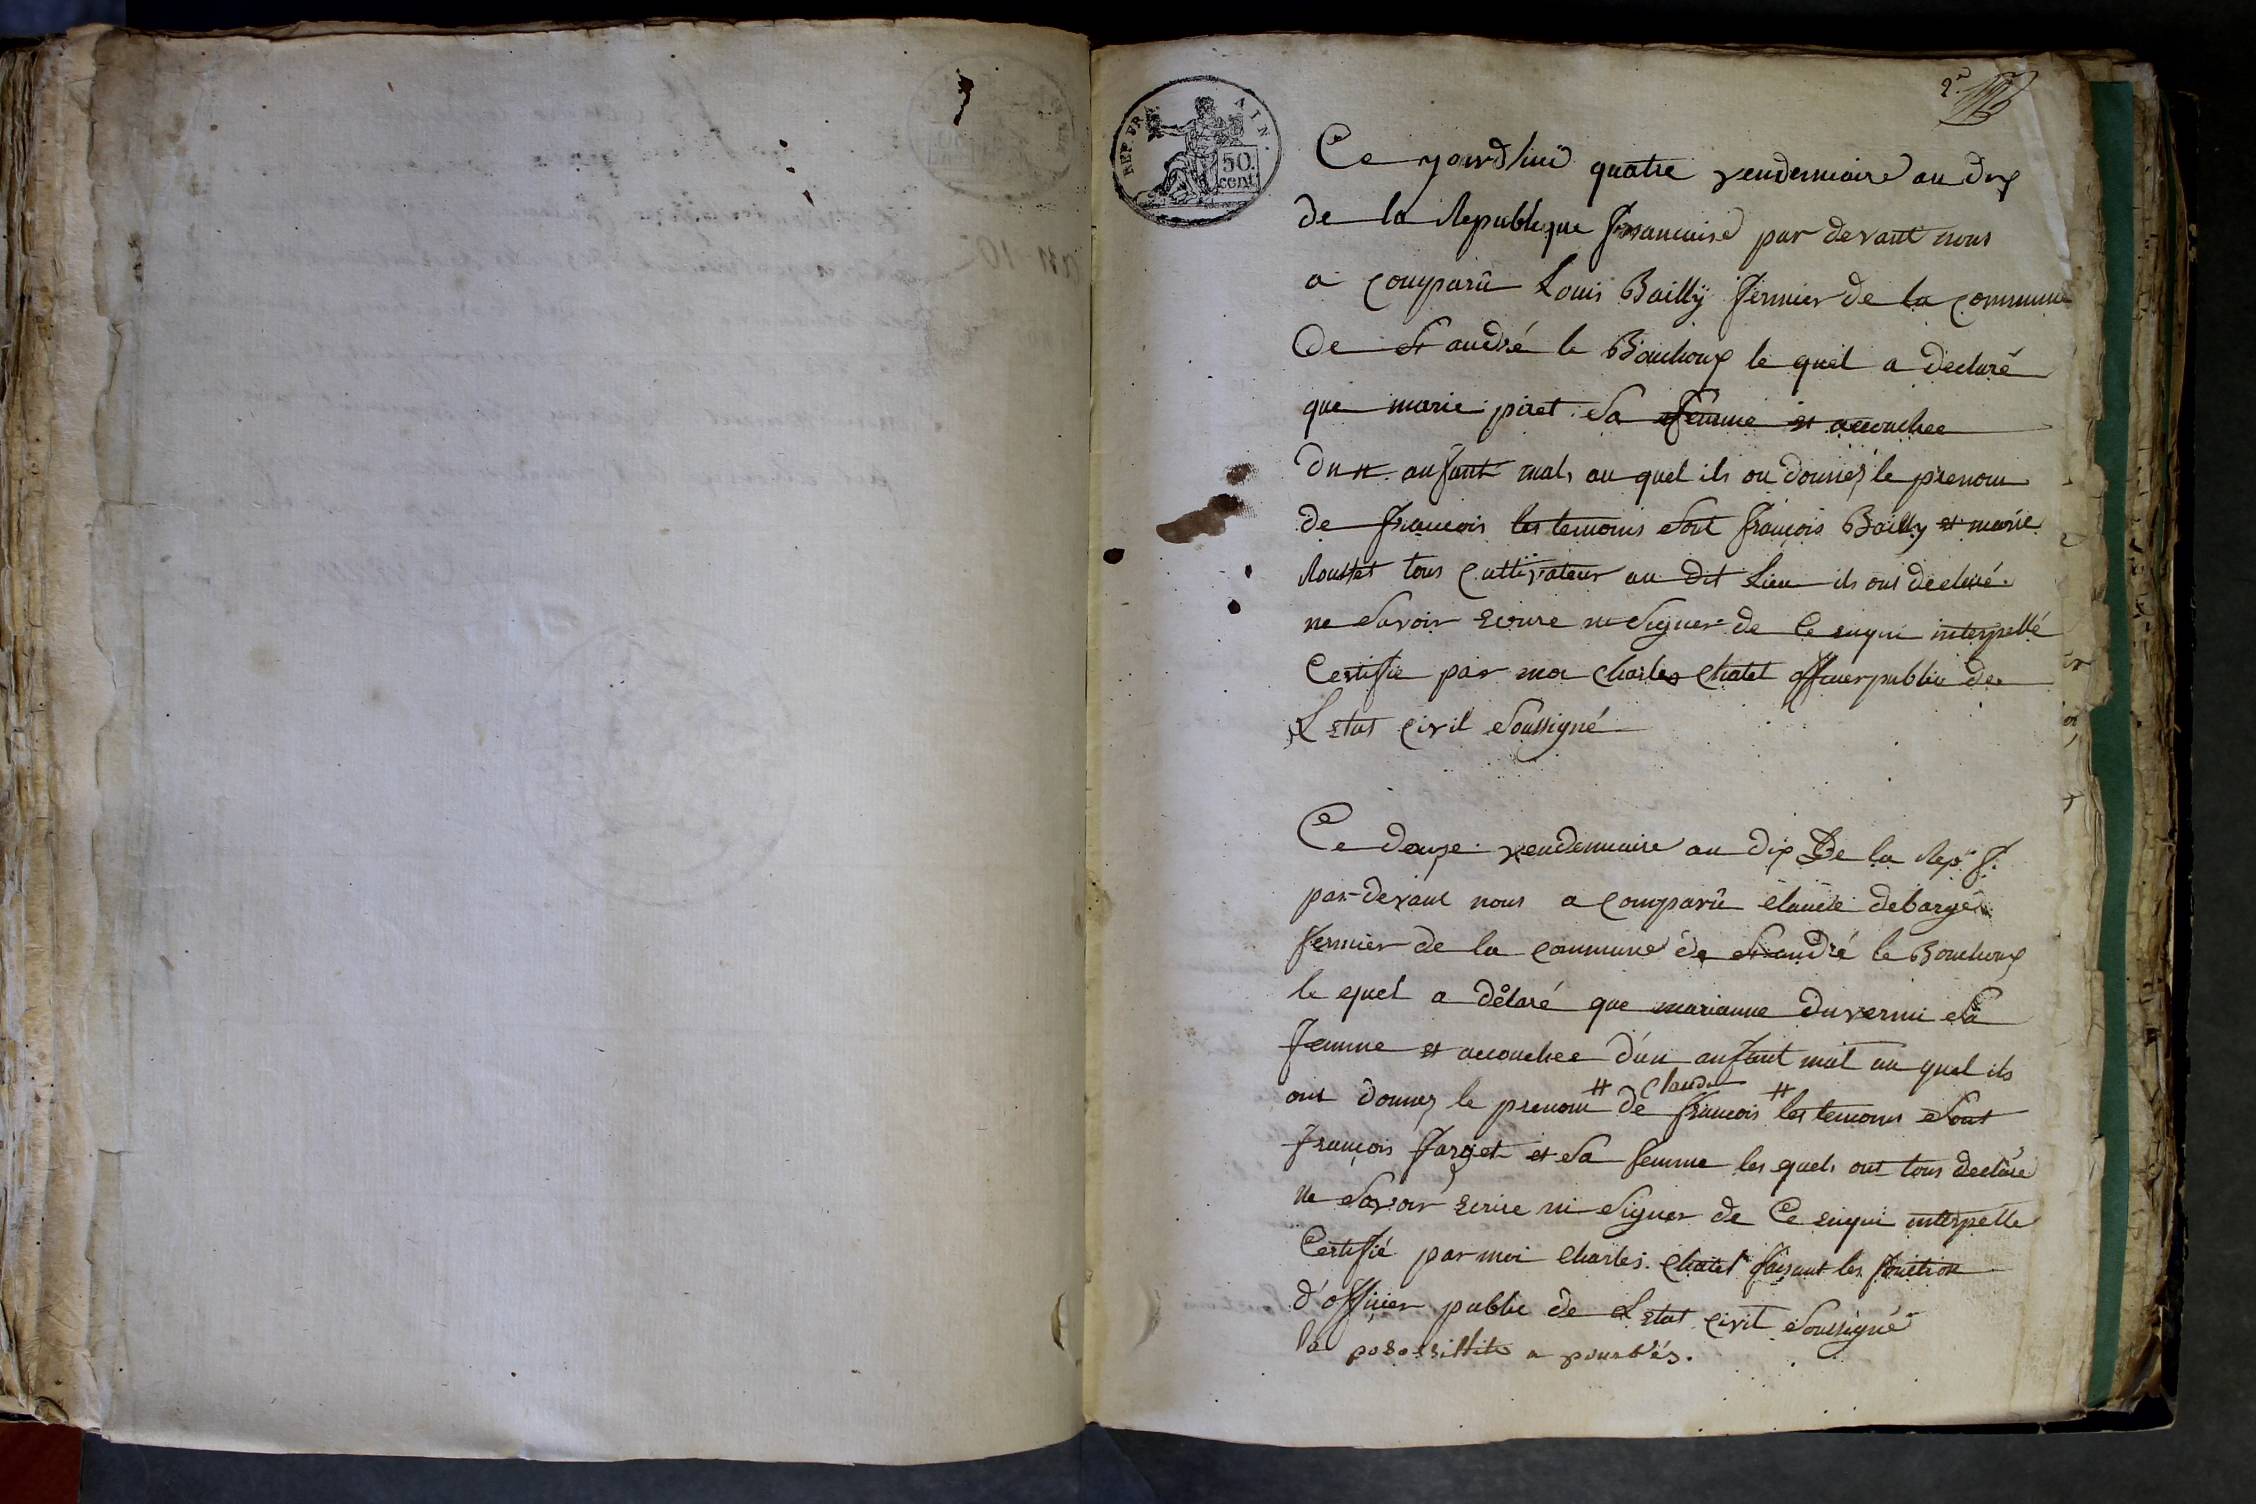 2e
REP. FRA
AIN.
50.
cent
Ce yourd'hui quatre vendemiaire an dix
de la Republique francaise par devant nous
a comparû Louis Bailly fermier de la commune
de St andré le Bouchoux le quel a declaré
que marie piret sa femme et accouchee
dun anfant mals au quel ils on donnéz le prenom
de francois les temoins sont françois Bailly et marie
Rousset tous cultivateur au dit Lieu ils ont declaré
ne savoir ecrire ni signer de ce enqui interpellé
Certifie par moi Charles Chatel officier public de
L etat civil soussigné
Ce douze vendemiaire an dix De la Rep. f.
par-devant nous a comparû claude debarge
fermier de la commune de St andré le Bouchoux
le quel a délaré que marianne duvernni sa
femme et accouchee d'un anfant mal au quel ils
ont donnez le prenom # de claude francois # les temoins sont
françois farget et sa femme les quels ont tous declaré
ne savoir ecrire ni signer de ce enqui interpelle
Certifié par moi Charles Chatel faisant les fonction
d'officier public de L etat civil soussigné